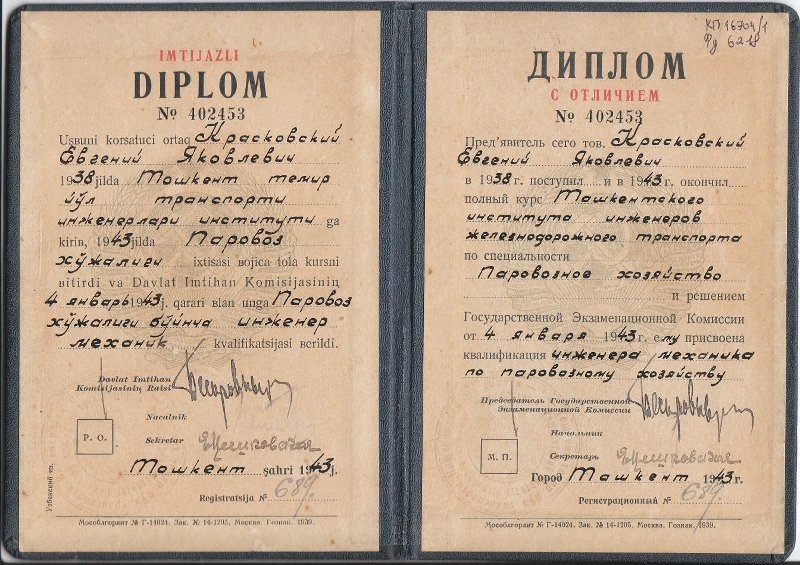 IMTIJAZLI
DIPLOM
№ 402453
Uşbuni korsatuci ortaq Красковский
Евгений Яковлевич
1938 jilda Тошкент темир
йўл транспорти
инженерлари институти ga
kirib, 1943 jilda Паровоз
хўжалиги ixtisasi bojica tola kursni
bitirdi va Davlat Imtihan Komisijasinin
4 январь 1943 j. qarari bilan unga Паровоз
хўжалиги бўйича инженер
механик kvalifikatsijasi berildi.
Davlat Imtihan
Komisijasinin Raisi
Nacalnik
P. O.
Sekretar
Тошкент şahri 1943 j.
Registratsija № 689.
Узбекский яз.
Мособлгорлит № Г-14024. Зак. № 14-1205. Москва. Гознак. 1939.
КП 16704/1
ДИПЛОМ
С ОТЛИЧИЕМ
№ 402453
Пред'явитель сего тов. Красковский
Евгений Яковлевич
в 1938 г. поступил и в 1943 г. окончил
полный курс Ташкентского
института инженеров
железнодорожного транспорта
по специальности
Паровозное хозяйство
и решением
Государственной Экзаменационной Комиссии
от 4 января 1943 г. ему присвоена
квалификация инженера механика
по паровозному хозяйству
Председатель Государственной
Экзаменационной Комиссии
Начальник
М. П.
Секретарь
Город Ташкент 1943 г.
Регистрационный № 689.
Мособлгорлит № Г-14024. Зак. № 14-1205. Москва. Гознак. 1939.